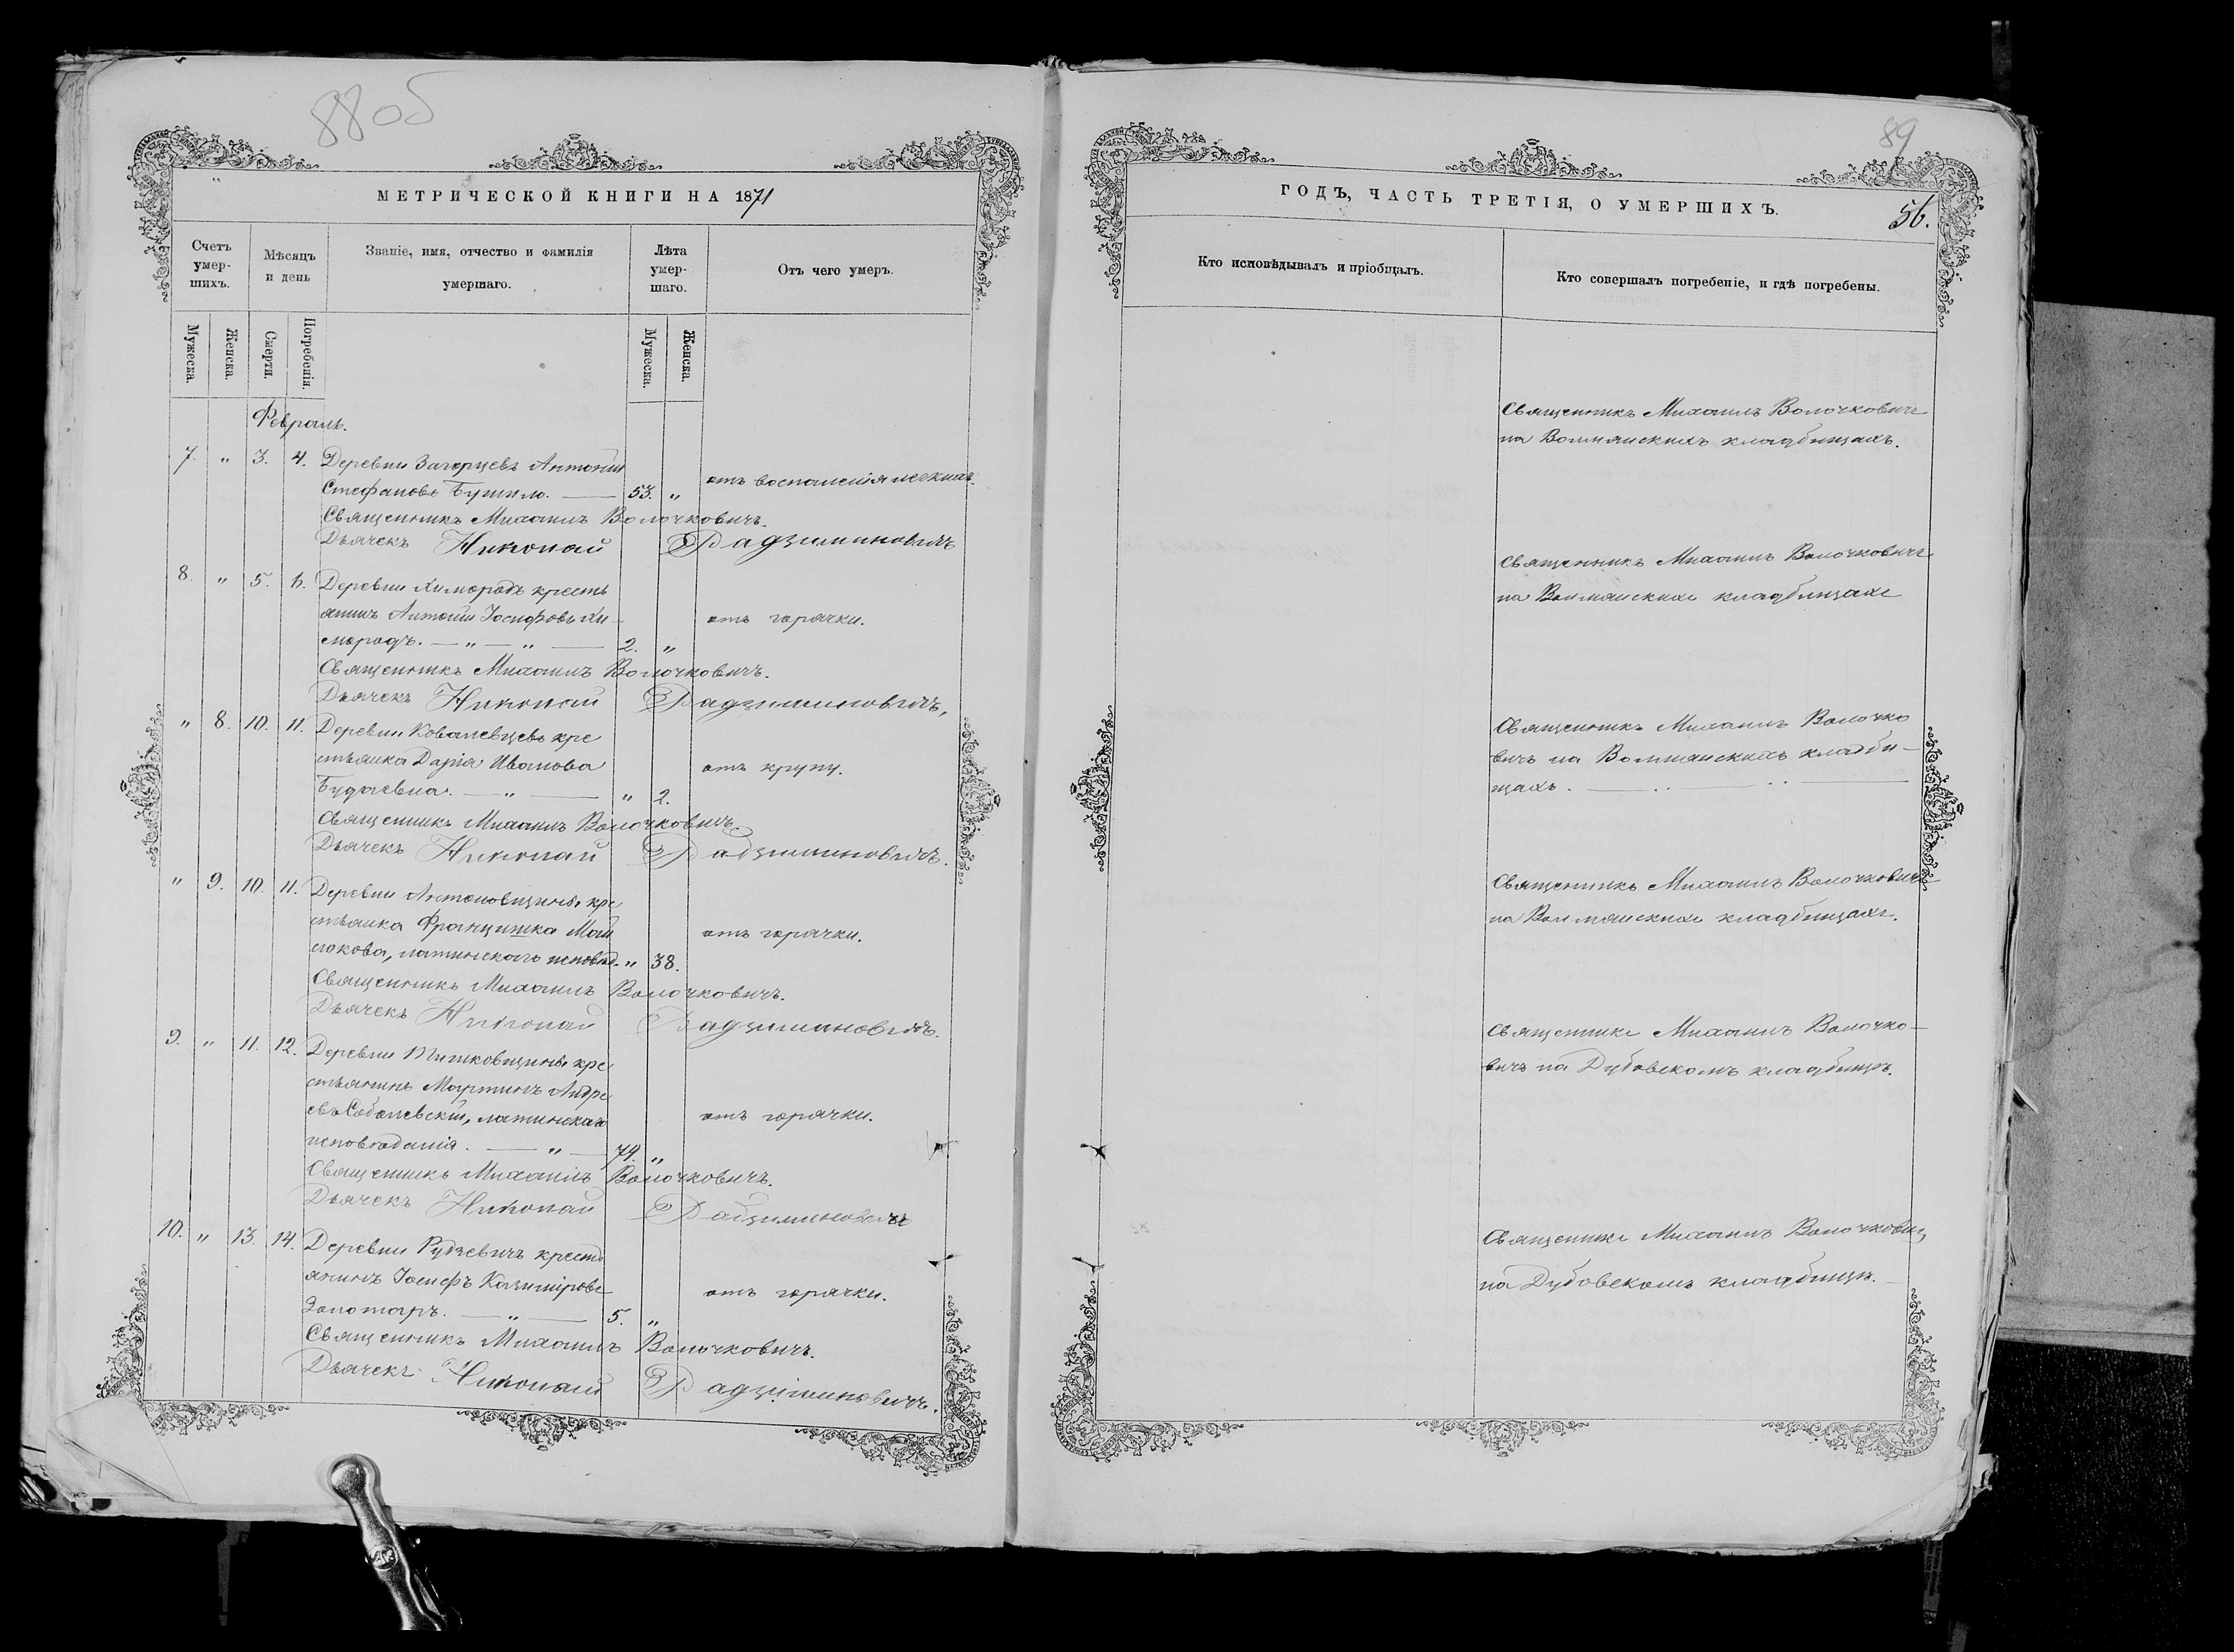 88об
МЕТРИЧЕСКОЙ КНИГИ НА 1871
Счетъ умер-шихъ.
Мѣсяцъ и день
Званіе, имя, отчество и фамилія умершаго.
Лѣта умер-шаго.
Отъ чего умеръ.
Мужеска.
Женска.
Смерти.
Погребенія.
Мужеска.
Женска.
Февраль.
7. " 3. 4. Деревни Загорцевъ Антоній
Стефановъ Бушило. — 53. " отъ воспаленія легкихъ.
Священникъ Михаилъ Волочковичъ.
Дьячекъ Николай Радзиминовичъ
8. " 5. 6. Деревни Химородъ кресть
янинъ Антоній Іосифовъ Хи- отъ горячки.
мородъ. — " — " — 2. "
Священникъ Михаилъ Волочковичъ.
Дьячекъ Николай Радзиминовичъ,
" 8. 10. 11. Деревни Ковалевцевъ кре
стьянка Дарія Иванова отъ крупу.
Будаевна. — " — " 2.
Священникъ Михаилъ Волочковичъ.
Дьячекъ Николай Радзиминовичъ.
" 9. 10. 11. Деревни Антоновщины кре
стьянка Францишка Май отъ горячки.
сюкова, латинскаго исповѣд. " 38.
Священникъ Михаилъ Волочковичъ.
Дьячекъ Николай Радзиминовичъ.
9. " 11. 12. Деревни Тишковщины кре
стьянинъ Мартинъ Андре
евъ Соболевскій, латинскаго отъ горячки.
исповѣданія. — " — 74. "
Священникъ Михаилъ Волочковичъ.
Дьячекъ Николай Радзиминовичъ
10. " 13. 14. Деревни Рудзевичъ кресть
янинъ Іосифъ Казиміровъ отъ горячки.
Золотаръ. — " — 5. "
Священникъ Михаилъ Волочковичъ.
Дьячекъ Николай Радзиминовичъ.
89
ГОДЪ, ЧАСТЬ ТРЕТІЯ, О УМЕРШИХЪ.
56.
Кто исповѣдывалъ и пріобщалъ.
Кто совершалъ погребеніе, и гдѣ погребены.
Священникъ Михаилъ Волочковичъ
на Волмянскихъ кладбищахъ.
Священникъ Михаилъ Волочковичъ
на Волмянскихъ кладбищахъ
Священникъ Михаилъ Волочко
вичъ на Волмянскихъ кладби-
щахъ.
Священникъ Михаилъ Волочковичъ
на Волмянскихъ кладбищахъ.
Священникъ Михаилъ Волочко-
вичъ на Дубовскомъ кладбищѣ.
Священникъ Михаилъ Волочкович,
на Дубовскомъ кладбищѣ.